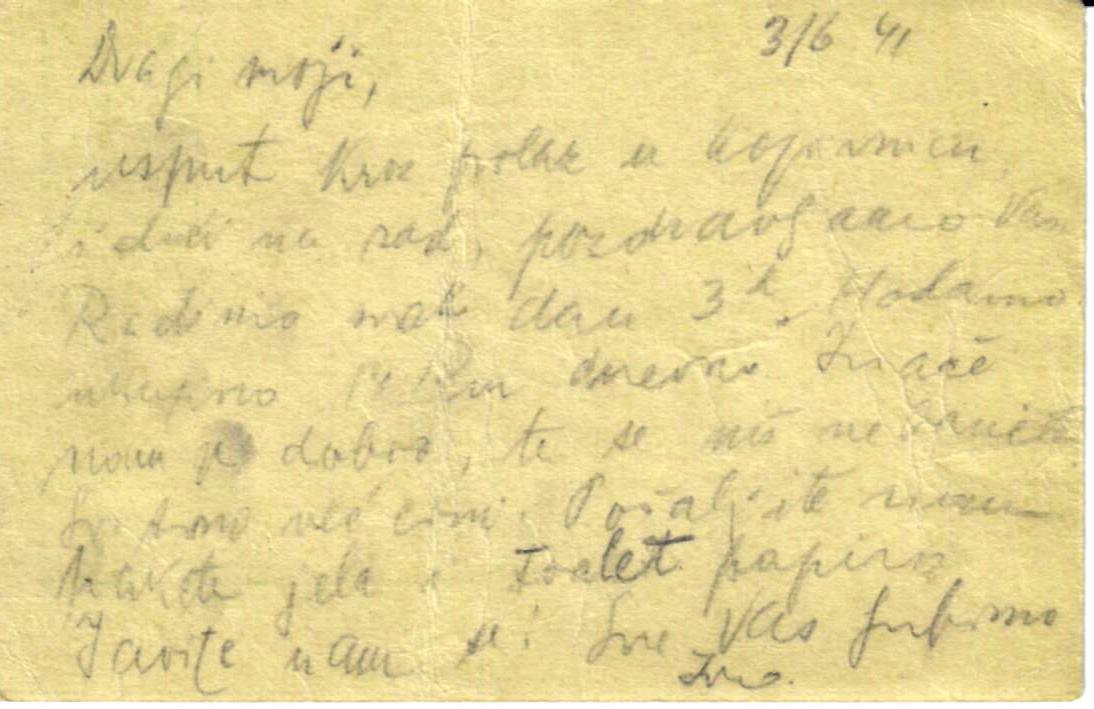 3/6 41
Dragi moji,
usput kroz prolaz u Koprivnicu
idući na rad, pozdravljamo Vas
Radimo svak dan 3h. Hodamo
ukupno 14 Km dnevno Inače
nam je dobro, te se niš ne brinite.
smo već crni. Pošaljite nam
pakete jela i toalet papira
Javite nam se! Sve Vas ljubimo
Ivo.